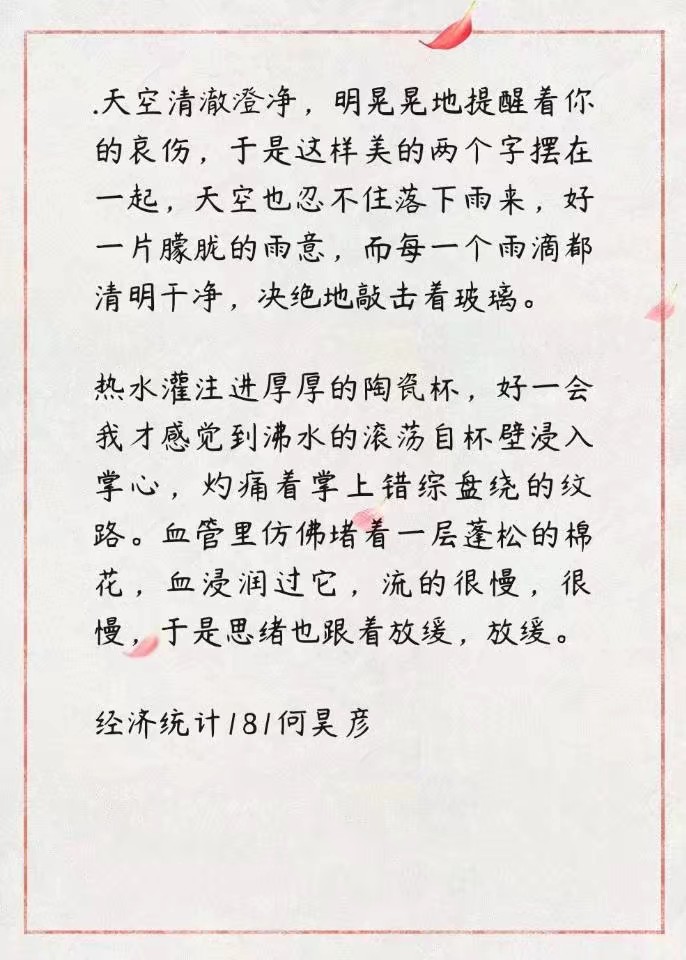 .天空清澈澄净，明晃晃地提醒着你
的哀伤，于是这样美的两个字摆在
一起，天空也忍不住落下雨来，好
一片朦胧的雨意，而每一个雨滴都
清明干净，决绝地敲击着玻璃。
热水灌注进厚厚的陶瓷杯，好一会
我才感觉到沸水的滚荡自杯壁浸入
掌心，灼痛着掌上错综盘绕的纹
路。血管里仿佛堵着一层蓬松的棉
花，血浸润过它，流的很慢，很
慢，于是思绪也跟着放缓，放缓。
经济统计181何昊彦